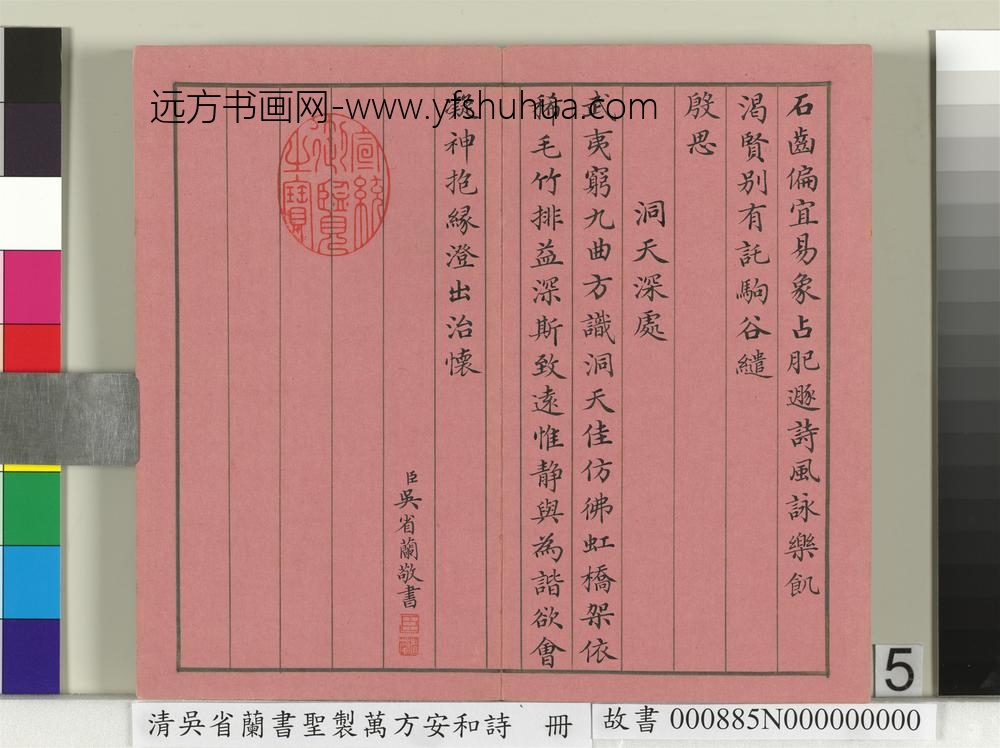 远方书画网-www.yfshuhua.com
石齒偏宜易象占肥遯詩風詠樂飢
渴賢别有託駒谷繾
殷思
洞天深處
武夷窮九曲方識洞天佳仿彿虹橋架依
稀毛竹排益深斯致遠惟静與為諧欲會
凝神抱緣澄出治懷
臣吳省蘭敬書
宣統
御覽
之寶
5
清吳省蘭書聖製萬方安和詩 冊
故書 000885N000000000